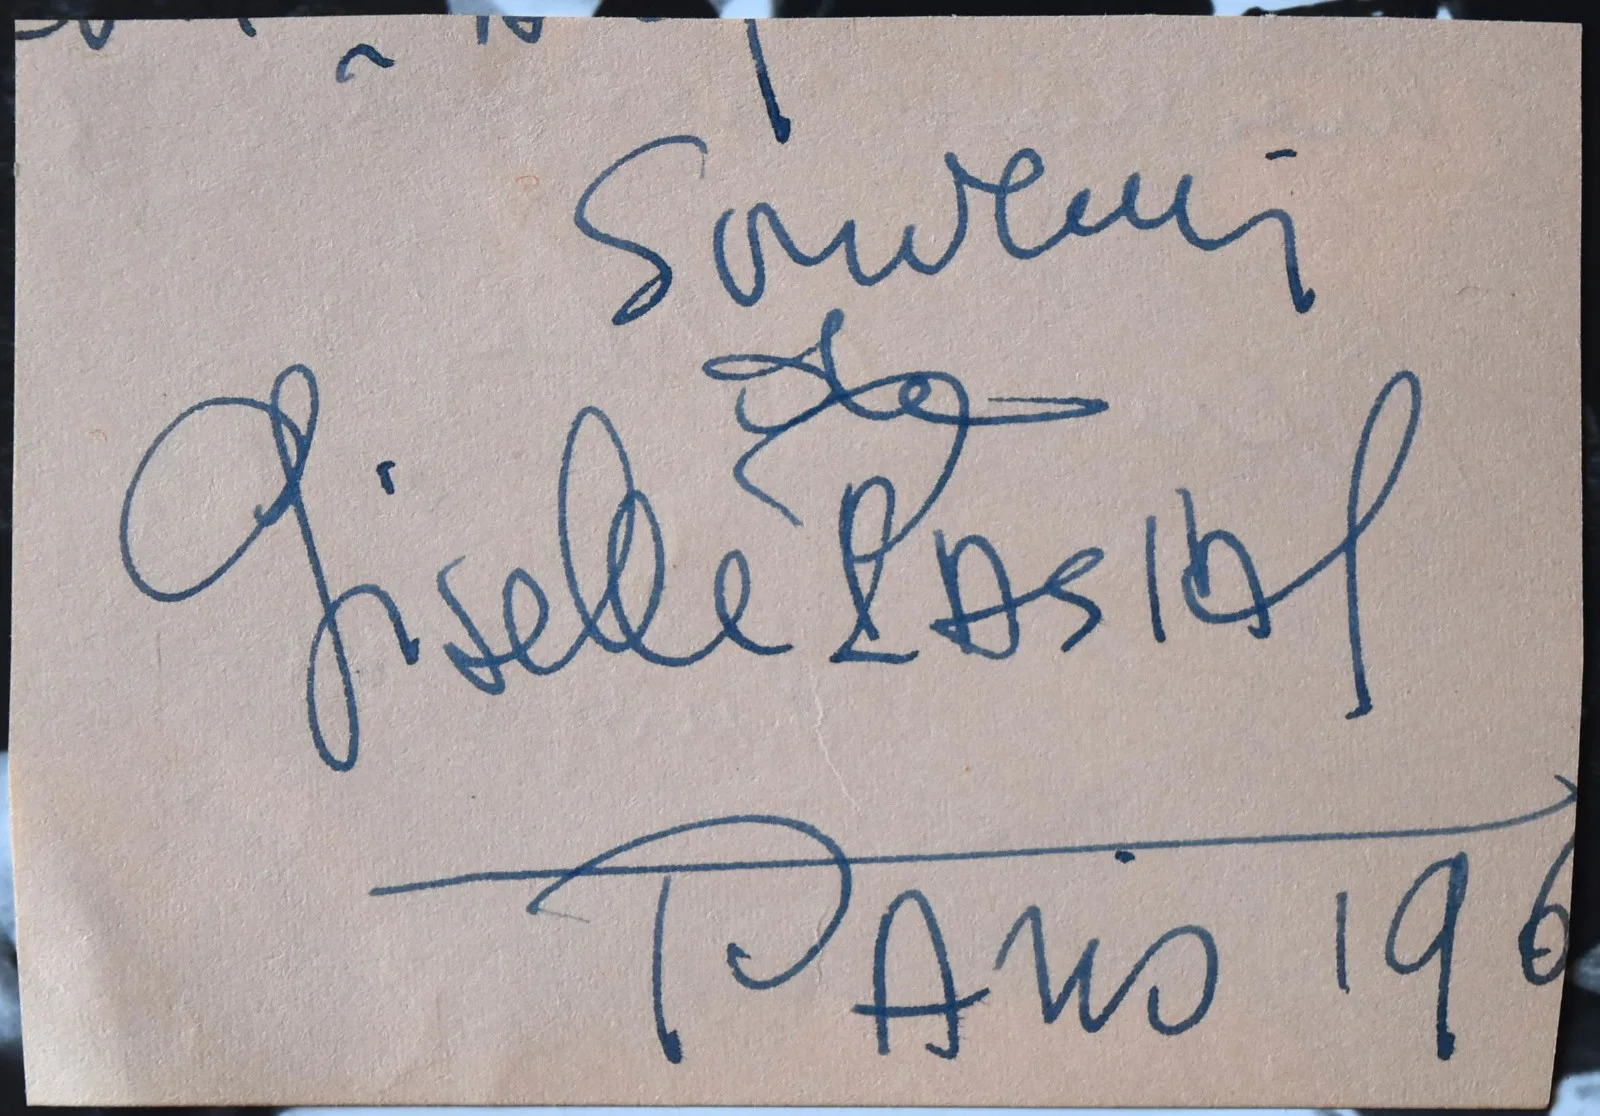 Souvenir
de
Giselle Pascal
Paris 196